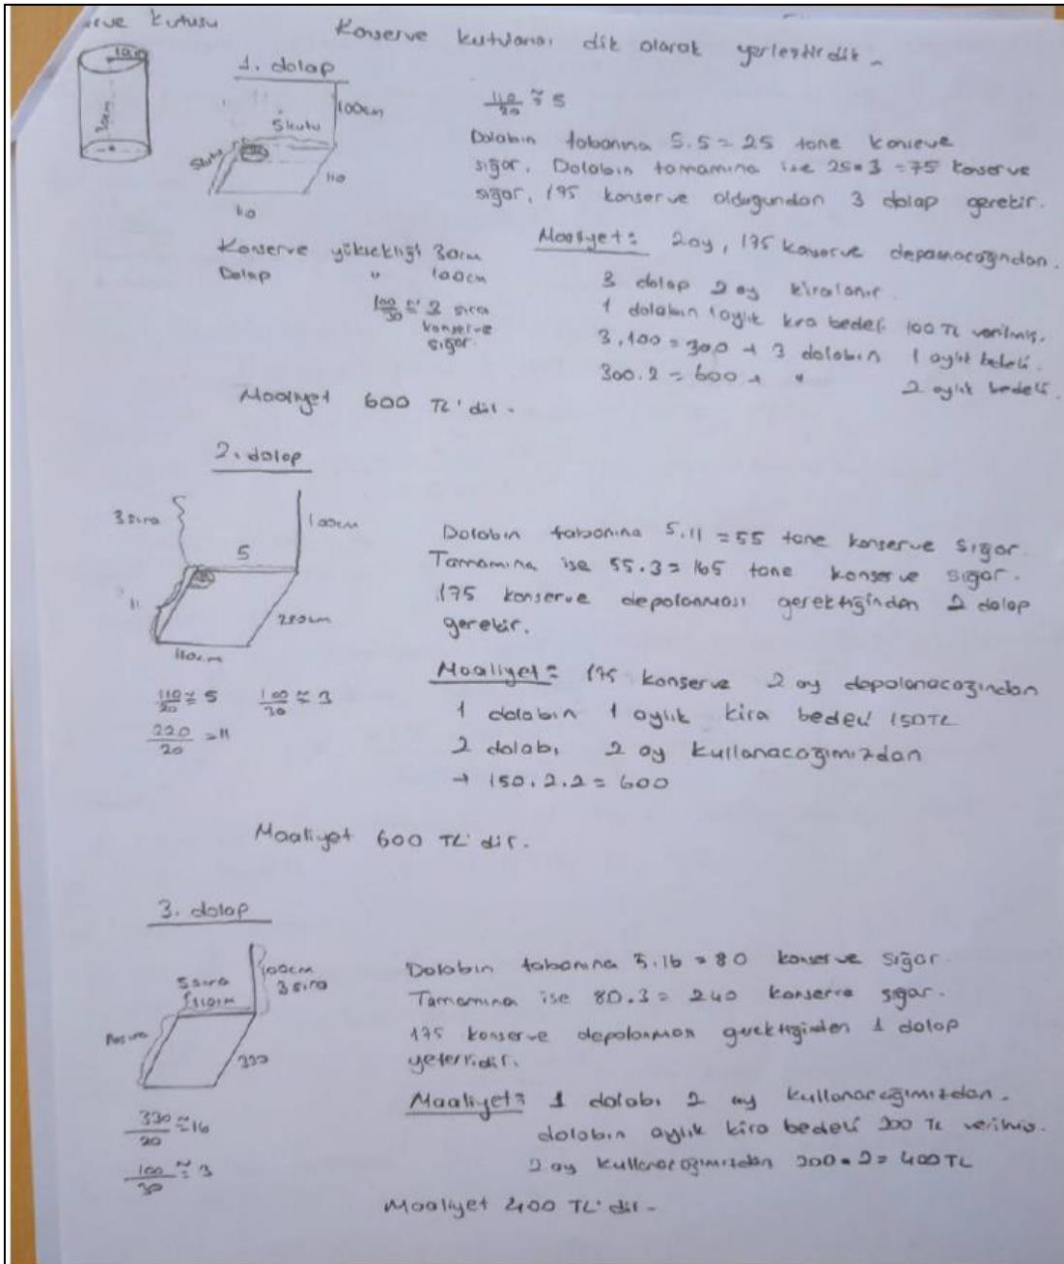 rve kutusu
Konserve kutularını dik olarak yerleştirdik.
10cm
30cm
1. dolap
100cm
5 kutu
5kutu
110
110
110/20 ≈ 5
Dolabın tabanına 5.5 = 25 tane konserve
sığar. Dolabın tamamına ise 25.3 = 75 konserve
sığar, 175 konserve olduğundan 3 dolap gerekir.
Konserve yüksekliği 30cm
Dolap " 100cm
100/30 ≈ 3 sıra
konserve
sığar.
Maaliyet: 2ay, 175 konserve depolanacağından.
3 dolap 2 ay kiralanır.
1 dolabın 1 aylık kira bedeli 100 TL verilmiş.
3.100 = 300 → 3 dolabın 1 aylık bedeli.
300.2 = 600 → " 2 aylık bedeli.
Maaliyet 600 TL'dir.
2. dolap
3 sıra
100cm
5
11
220cm
110cm
110/20 ≈ 5 100/30 ≈ 3
220/20 = 11
Dolabın tabanına 5.11 = 55 tane konserve sığar
Tamamına ise 55.3 = 165 tane konserve sığar.
175 konserve depolanması gerektiğinden 2 dolap
gerekir.
Maaliyet: 175 konserve 2 ay depolanacağından
1 dolabın 1 aylık kira bedeli 150TL
2 dolabı 2 ay kullanacağımızdan
→ 150.2.2 = 600
Maaliyet 600 TL'dir.
3. dolap
5 sıra
110cm
100cm
3 sıra
330
330/20 ≈ 16
100/30 ≈ 3
Dolabın tabanına 5.16 = 80 konserve sığar.
Tamamına ise 80.3 = 240 konserve sığar.
175 konserve depolanması gerektiğinden 1 dolap
yeterlidir.
Maaliyet: 1 dolabı 2 ay kullanacağımızdan.
dolabın aylık kira bedeli 200 TL verilmiş.
2 ay kullanacağımızdan 200.2 = 400TL
Maaliyet 400 TL'dir.